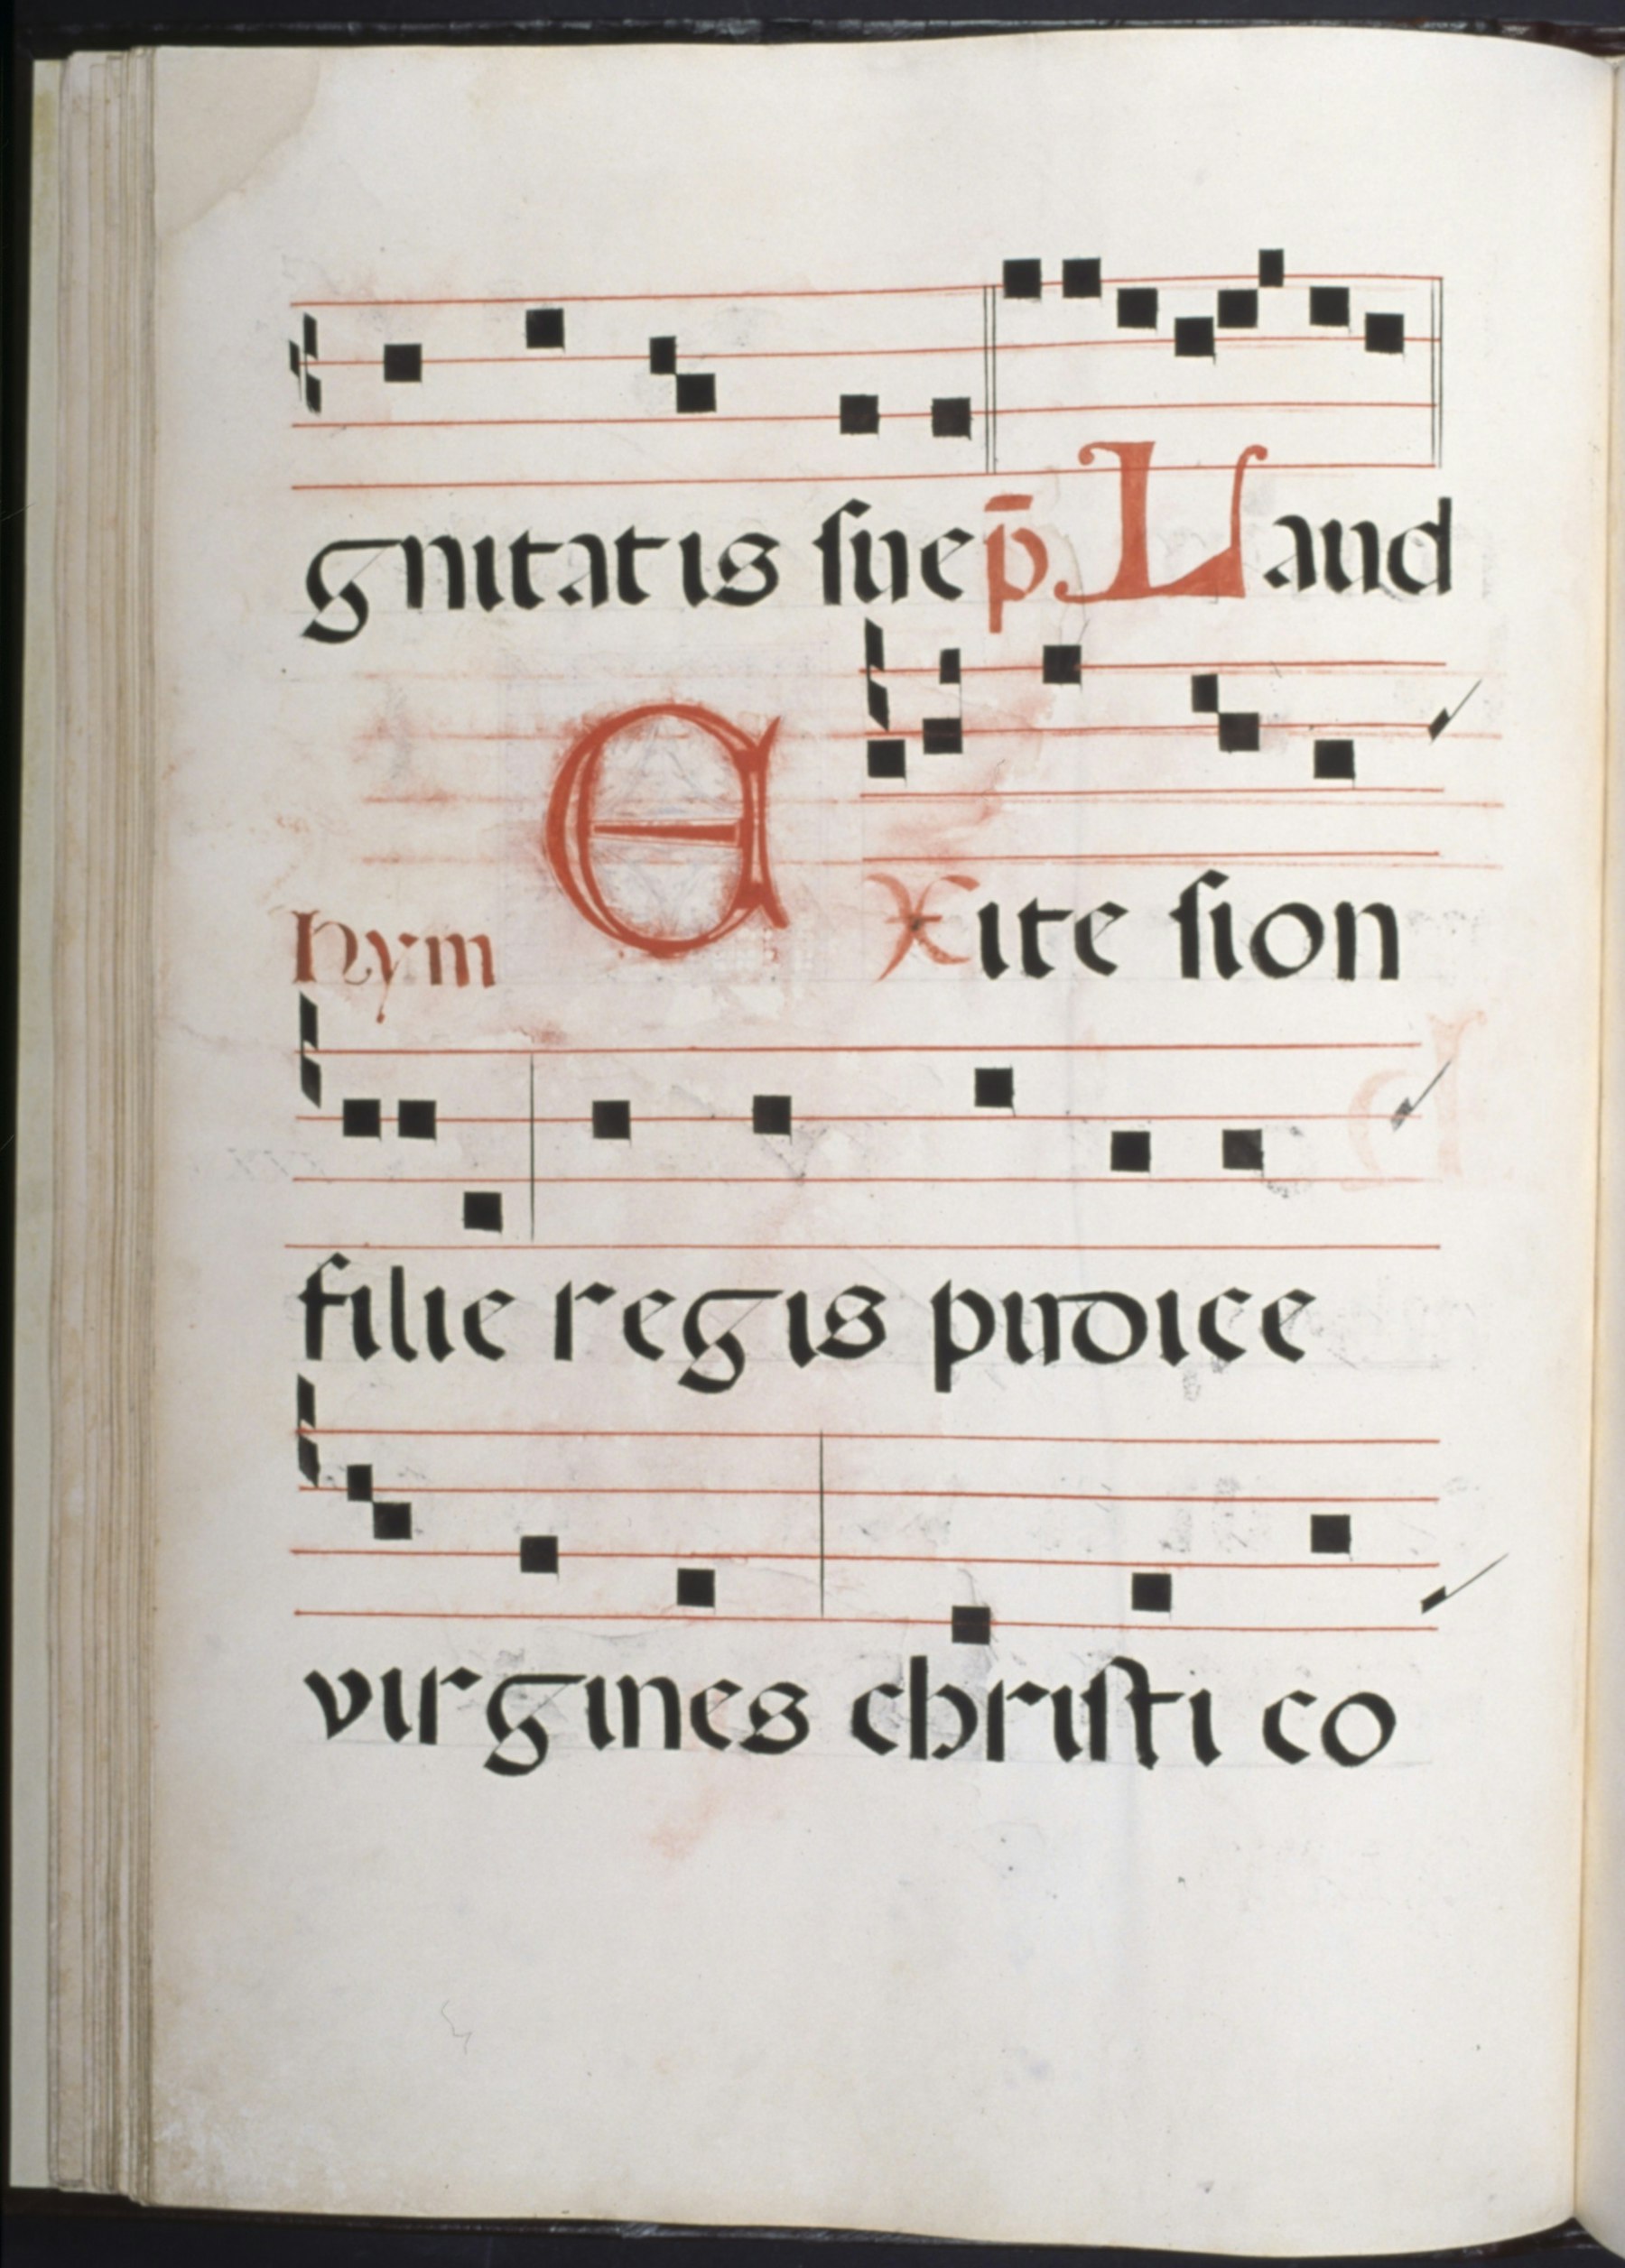 gnitatis sue p̄. Laud
hym EXite sion
filie regis pudice
virgines christi co